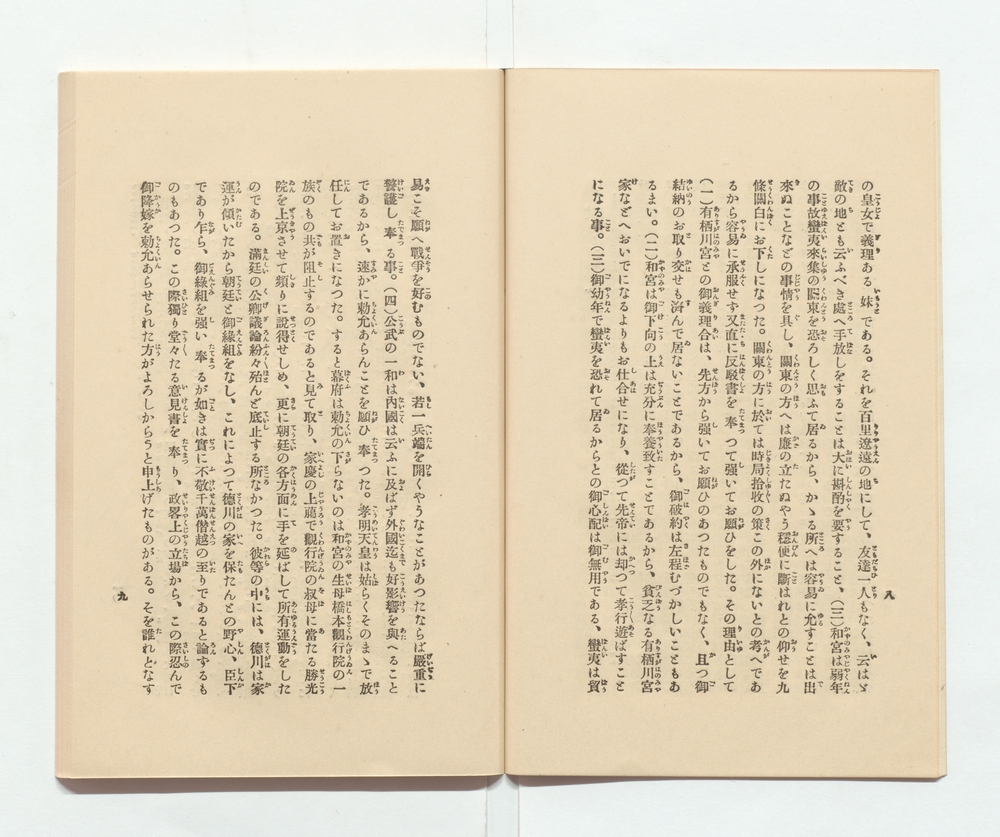 の皇女で義理ある妹である。それを百里遼遠の地にして、友達一人もなく、云はゞ
敵の地とも云ふべき處へ手放しをすることは大に斟酌を要すること、(三)和宮は弱年
の事故蠻夷來集の關東を恐ろしく思ふて居るから、かゝる所へは容易に允すことは出
來ぬことなどの事情を具し、關東の方へは廉の立たぬやう穩便に斷はれとの仰せを九
條關白にお下しになつた。關東の方に於ては時局拾收の策この外にないとの考へであ
るから容易に承服せず又直に反駁書を奉つて强いてお願ひをした。その理由として
(一)有栖川宮との御義理合は、先方から强いてお願ひのあつたものでもなく、且つ御
結納のお取り交せも濟んで居ないことであるから、御破約は左程むづかしいこともあ
るまい。(二)和宮は御下向の上は充分に奉養致すことであるから、貧乏なる有栖川宮
家などへおいでになるよりもお仕合せになり、從つて先帝には却つて孝行遊ばすこと
になる事。(三)御幼年で蠻夷を恐れて居るからとの御心配は御無用である、蠻夷は貿
八
易こそ願へ戰爭を好むものでない、若一兵端を開くやうなことがあつたならば嚴重に
警護し奉る事。(四)公武の一和は內國は云ふに及ばず外國迄も好影響を與へること
であるから、速かに勅允あらんことを願ひ奉つた。孝明天皇は姑らくそのまゝで放
任してお置きになつた。すると幕府は勅允の下らないのは和宮の生母橋本觀行院の一
族のもの共が阻止するのであると見て取り、家慶の上﨟で觀行院の叔母に當たる勝光
院を上京させて頻りに說得せしめ、更に朝廷の各方面に手を延ばして所有運動をした
のである。滿廷の公卿議論紛々殆んど底止する所なかつた。彼等の中には、德川は家
運が傾いたから朝廷と御緣組をなし、これによつて德川の家を保たんとの野心、臣下
であり乍ら、御緣組を强い奉るが如きは實に不敬千萬僭越の至りであると論ずるも
のもあつた。この際獨り堂々たる意見書を奉り、政畧上の立場から、この際忍んで
御降嫁を勅允あらせられた方がよろしからうと申上げたものがある。そを誰れとなす
九